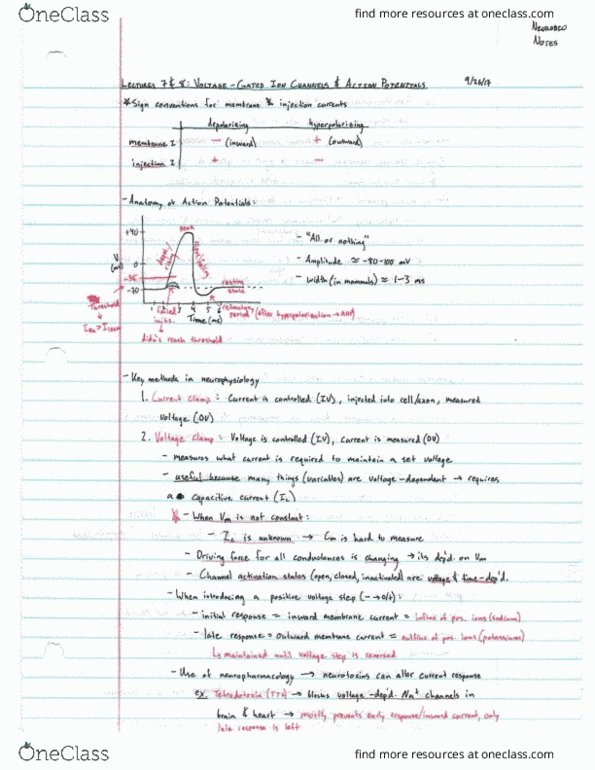 OneClass
find more resources at oneclass.com
NEUROBIO
NOTES
LECTURES 7 & 8: VOLTAGE-GATED ION CHANNELS & ACTION POTENTIALS 9/26/17
*Sign conventions for membrane & injection currents
depolarizing hyperpolarizing
membrane I - (inward) + (outward)
injection I + -
- Anatomy of Action Potentials:
+40
peak
0
V
(mV)
-55
-70
resting
state
Threshold
failed
inits.
1 2 3 4 5 6
Time (ms)
refractory
period (after hyperpolarization → AHP)
didn't reach threshold
- "All or nothing"
- Amplitude ≈ -90-100 mV
- width (in mammals) ≈ 1-3 ms
- Key methods in neurophysiology
1. Current clamp: Current is controlled (IV), injected into cell/axon, measured
voltage (DV)
2. Voltage clamp: Voltage is controlled (IV), current is measured (DV)
- measures what current is required to maintain a set voltage
- useful because many things (variables) are voltage-dependent → requires
a capacitive current (Ic)
* - When Vm is not constant:
- Ic is unknown → Cm is hard to measure
- Driving force for all conductances is changing → its dep'd. on Vm
- Channel activation states (open, closed, inactivated) are voltage & time-dep'd.
- When introducing a positive voltage step
- initial response = inward membrane current = influx of pos. ions (sodium)
- late response = outward membrane current = outflux of pos. ions (potassium)
↳ maintained until voltage step is reversed
- Use of neuropharmacology → neurotoxins can alter current response
ex: Tetrodotoxin (TTX) → blocks voltage-dep'd. Na+ channels in
brain & heart → mostly prevents early response/inward current, only
late response is left
OneClass
find more resources at oneclass.com